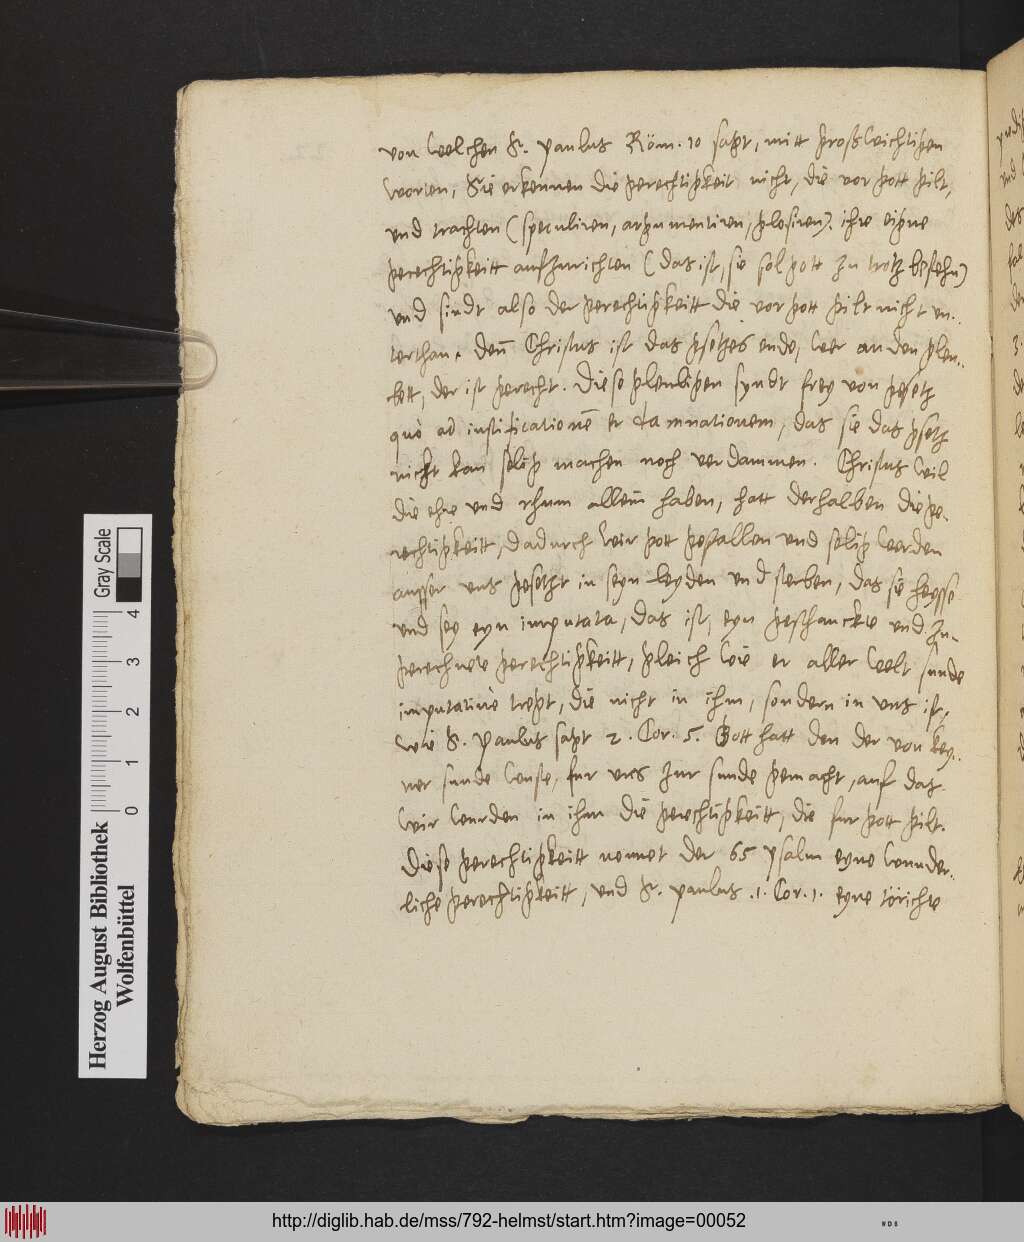 von welchen S. paulus Röm. 10 sagt, mitt groß wichtigen
worten, Sie erkennen die gerechtigkeit nicht, die vor gott gilt,
und trachten (speculiren, argumentiren, glosiren). ihre eigne
gerechtigkeitt aufzurichten (das ist, sie sol gott zu trotz bestehn)
und sindt also der gerechtigkeitt die vor gott gilt nicht un..
terthan. denn Christus ist das gsetzes ende, wer an den gleu..
bett, der ist gerecht. Diese gleubigen syndt frey von gesetz
quo ad iustificationē et damnationem, das sie das gsetz
nicht kan selig machen noch verdammen. Christus wil
die ehre und rhum allein haben, hatt derhalben die ge-
rechtigkeitt, dadurch wir gott gefallen und selig werden
ausser uns gesetzt in seyn leyden und sterben, das sie heysse
und sey eyn imputata, das ist, eyn geschanckte und zu-
gerechnete gerechtigkeitt, gleich wie er aller welt sunde
imputative tregt, die nicht in ihm, sondern in uns ist,
wie S. Paulus sagt 2. Cor. 5. Gott hatt den der von key..
ner sunde wuste, fur uns zur sunde gemacht, auf das
wir wurden in ihm die gerechtigkeitt, die fur gott gilt.
Diese gerechtigkeitt nennet der 65 psalm eyne wunder..
liche gerechtigkeitt, und S. paulus .1. Cor. 1. eyne törichte
Herzog August Bibliothek
Wolfenbüttel
0 1 2 3 4
Gray Scale
http://diglib.hab.de/mss/792-helmst/start.htm?image=00052